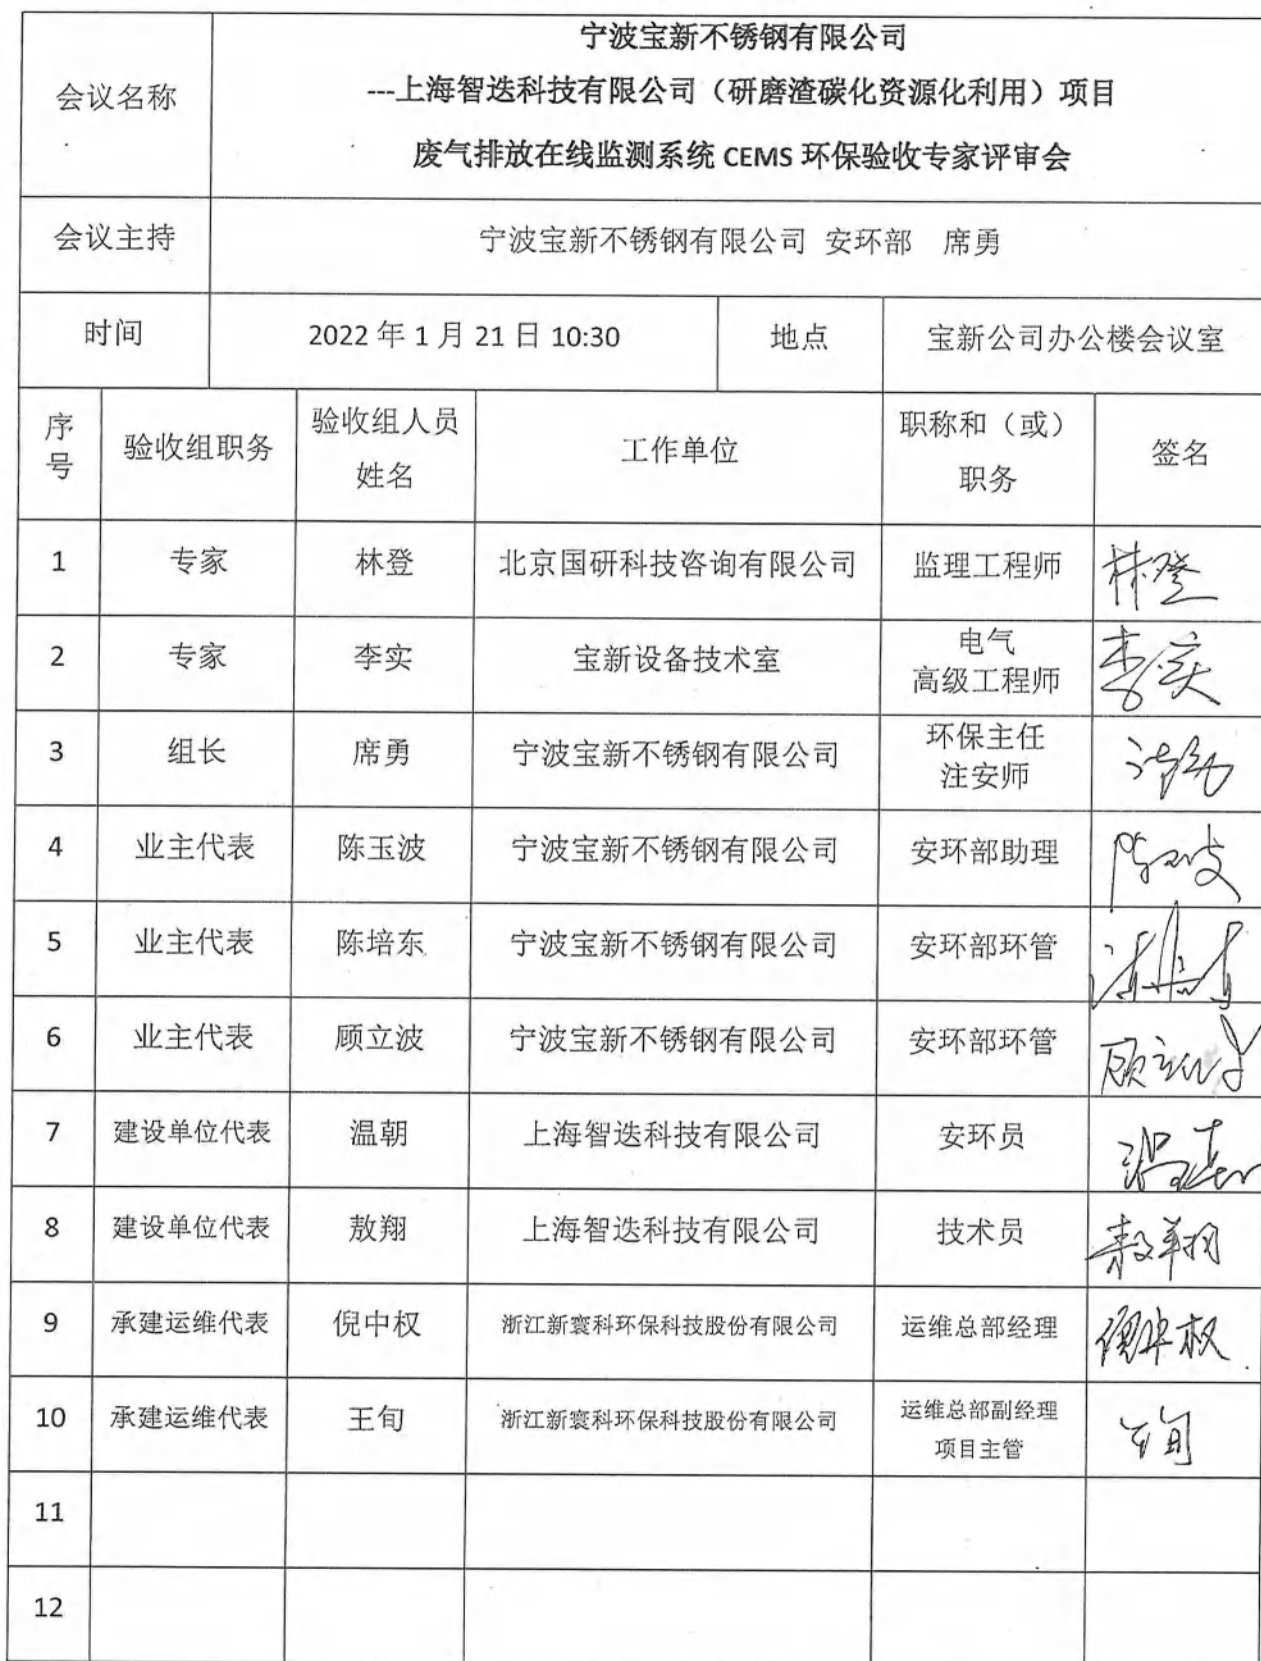 宁波宝新不锈钢有限公司
会议名称
---上海智迭科技有限公司（研磨渣碳化资源化利用）项目
废气排放在线监测系统 CEMS 环保验收专家评审会
会议主持 宁波宝新不锈钢有限公司 安环部 席勇
时间 2022 年 1 月 21 日 10:30 地点 宝新公司办公楼会议室
序号 验收组职务 验收组人员姓名 工作单位 职称和（或）职务 签名
1 专家 林登 北京国研科技咨询有限公司 监理工程师 林登
2 专家 李实 宝新设备技术室 电气高级工程师 李实
3 组长 席勇 宁波宝新不锈钢有限公司 环保主任注安师
4 业主代表 陈玉波 宁波宝新不锈钢有限公司 安环部助理 陈玉波
5 业主代表 陈培东 宁波宝新不锈钢有限公司 安环部环管
6 业主代表 顾立波 宁波宝新不锈钢有限公司 安环部环管 顾立波
7 建设单位代表 温朝 上海智迭科技有限公司 安环员
8 建设单位代表 敖翔 上海智迭科技有限公司 技术员 敖翔
9 承建运维代表 倪中权 浙江新寰科环保科技股份有限公司 运维总部经理 倪中权
10 承建运维代表 王旬 浙江新寰科环保科技股份有限公司 运维总部副经理项目主管 王旬
11
12